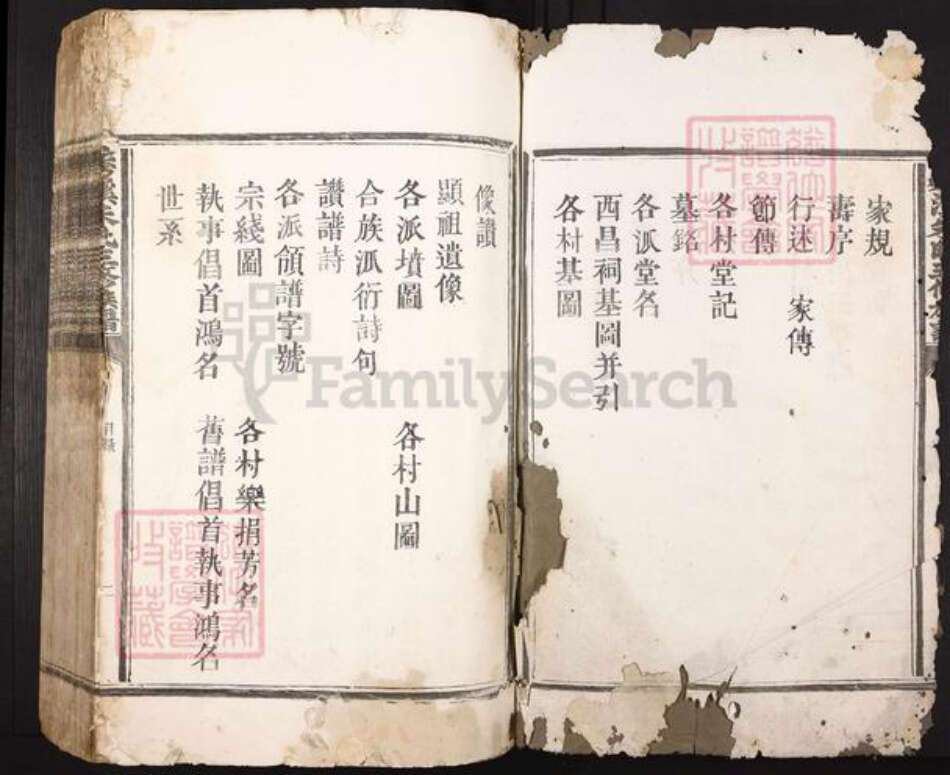 家規
壽序
行述 家傳
節傳
各村堂記
墓銘
各派堂名
西昌祠基圖并引
各村基圖
像讃
顯祖遺像
各派墳圖 各村山圖
合族派衍詩句
讃譜詩
各派領譜字號
宗綫圖 各村樂捐芳名
執事倡首鴻名 舊譜倡首執事鴻名
世系
目錄
二
FamilySearch